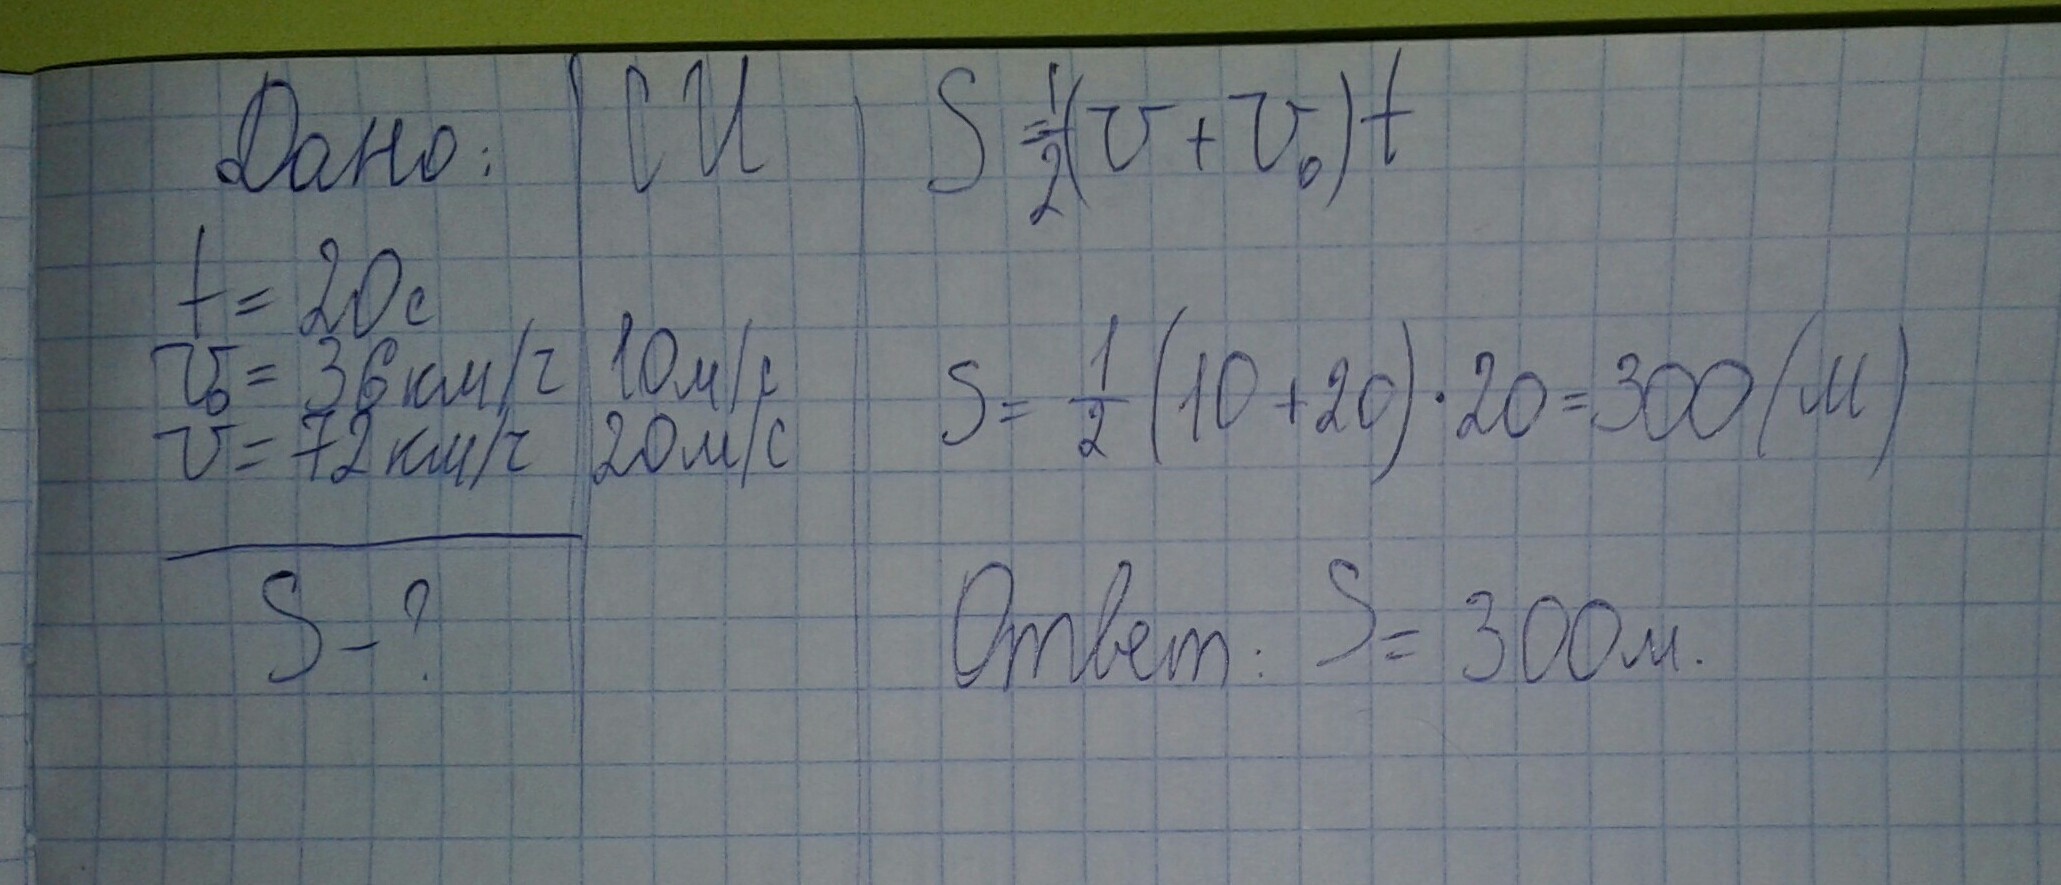 Дано:
t = 20с
v₀ = 36км/ч
v = 72км/ч
S - ?
СИ
10м/с
20м/с
S = 1/2 (v + v₀) t
S = 1/2 (10 + 20) · 20 = 300 (м)
Ответ: S = 300м.